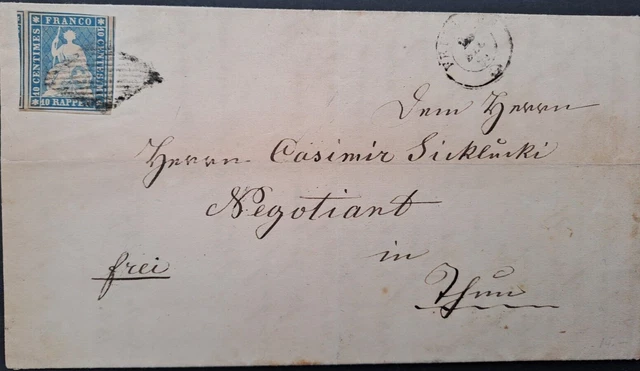 FRANCO
10 CENTIMES
10 CENTESIMI
10 RAPPEN
Dem Herrn
Herrn Casimir Sicklucki
Negotiant
in
frei
Thun